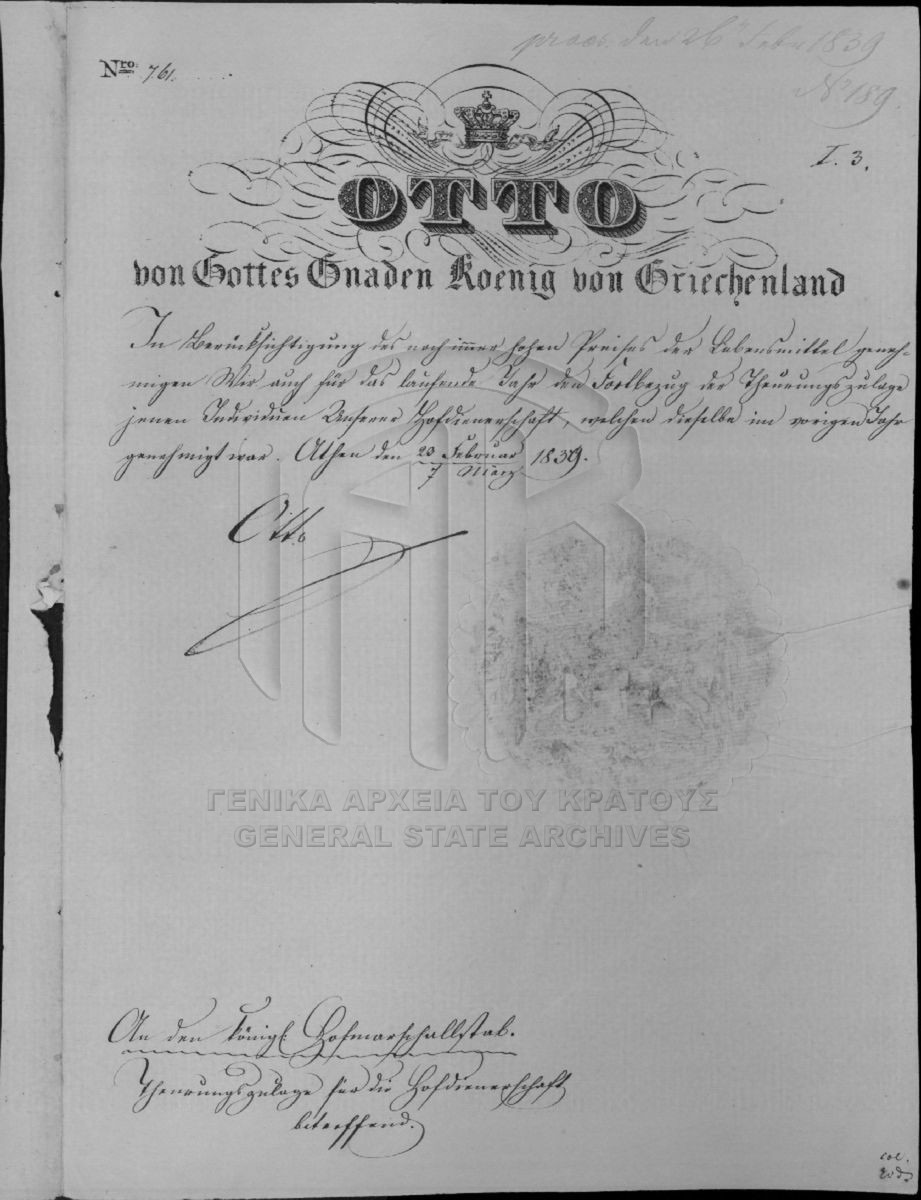 praes. den 26 Febr 1839
Nro. 761.
No 189.
I. 3.
OTTO
von Gottes Gnaden Koenig von Griechenland
In Berücksichtigung des noch immer hohen Preises der Lebensmittel geneh-
migen Wir auch für das laufende Jahr den Fortbezug der Theuerungszulage
jenen Individuen Unserer Hofdienerschaft, welchen dieselbe im vorigen Jahr
genehmigt war. Athen den 23 Februar 1839.
7 März
Otto
ΓΕΝΙΚΑ ΑΡΧΕΙΑ ΤΟΥ ΚΡΑΤΟΥΣ
GENERAL STATE ARCHIVES
An den königl. Hofmarschallstab.
Theuerungszulage für die Hofdienerschaft
betreffend.